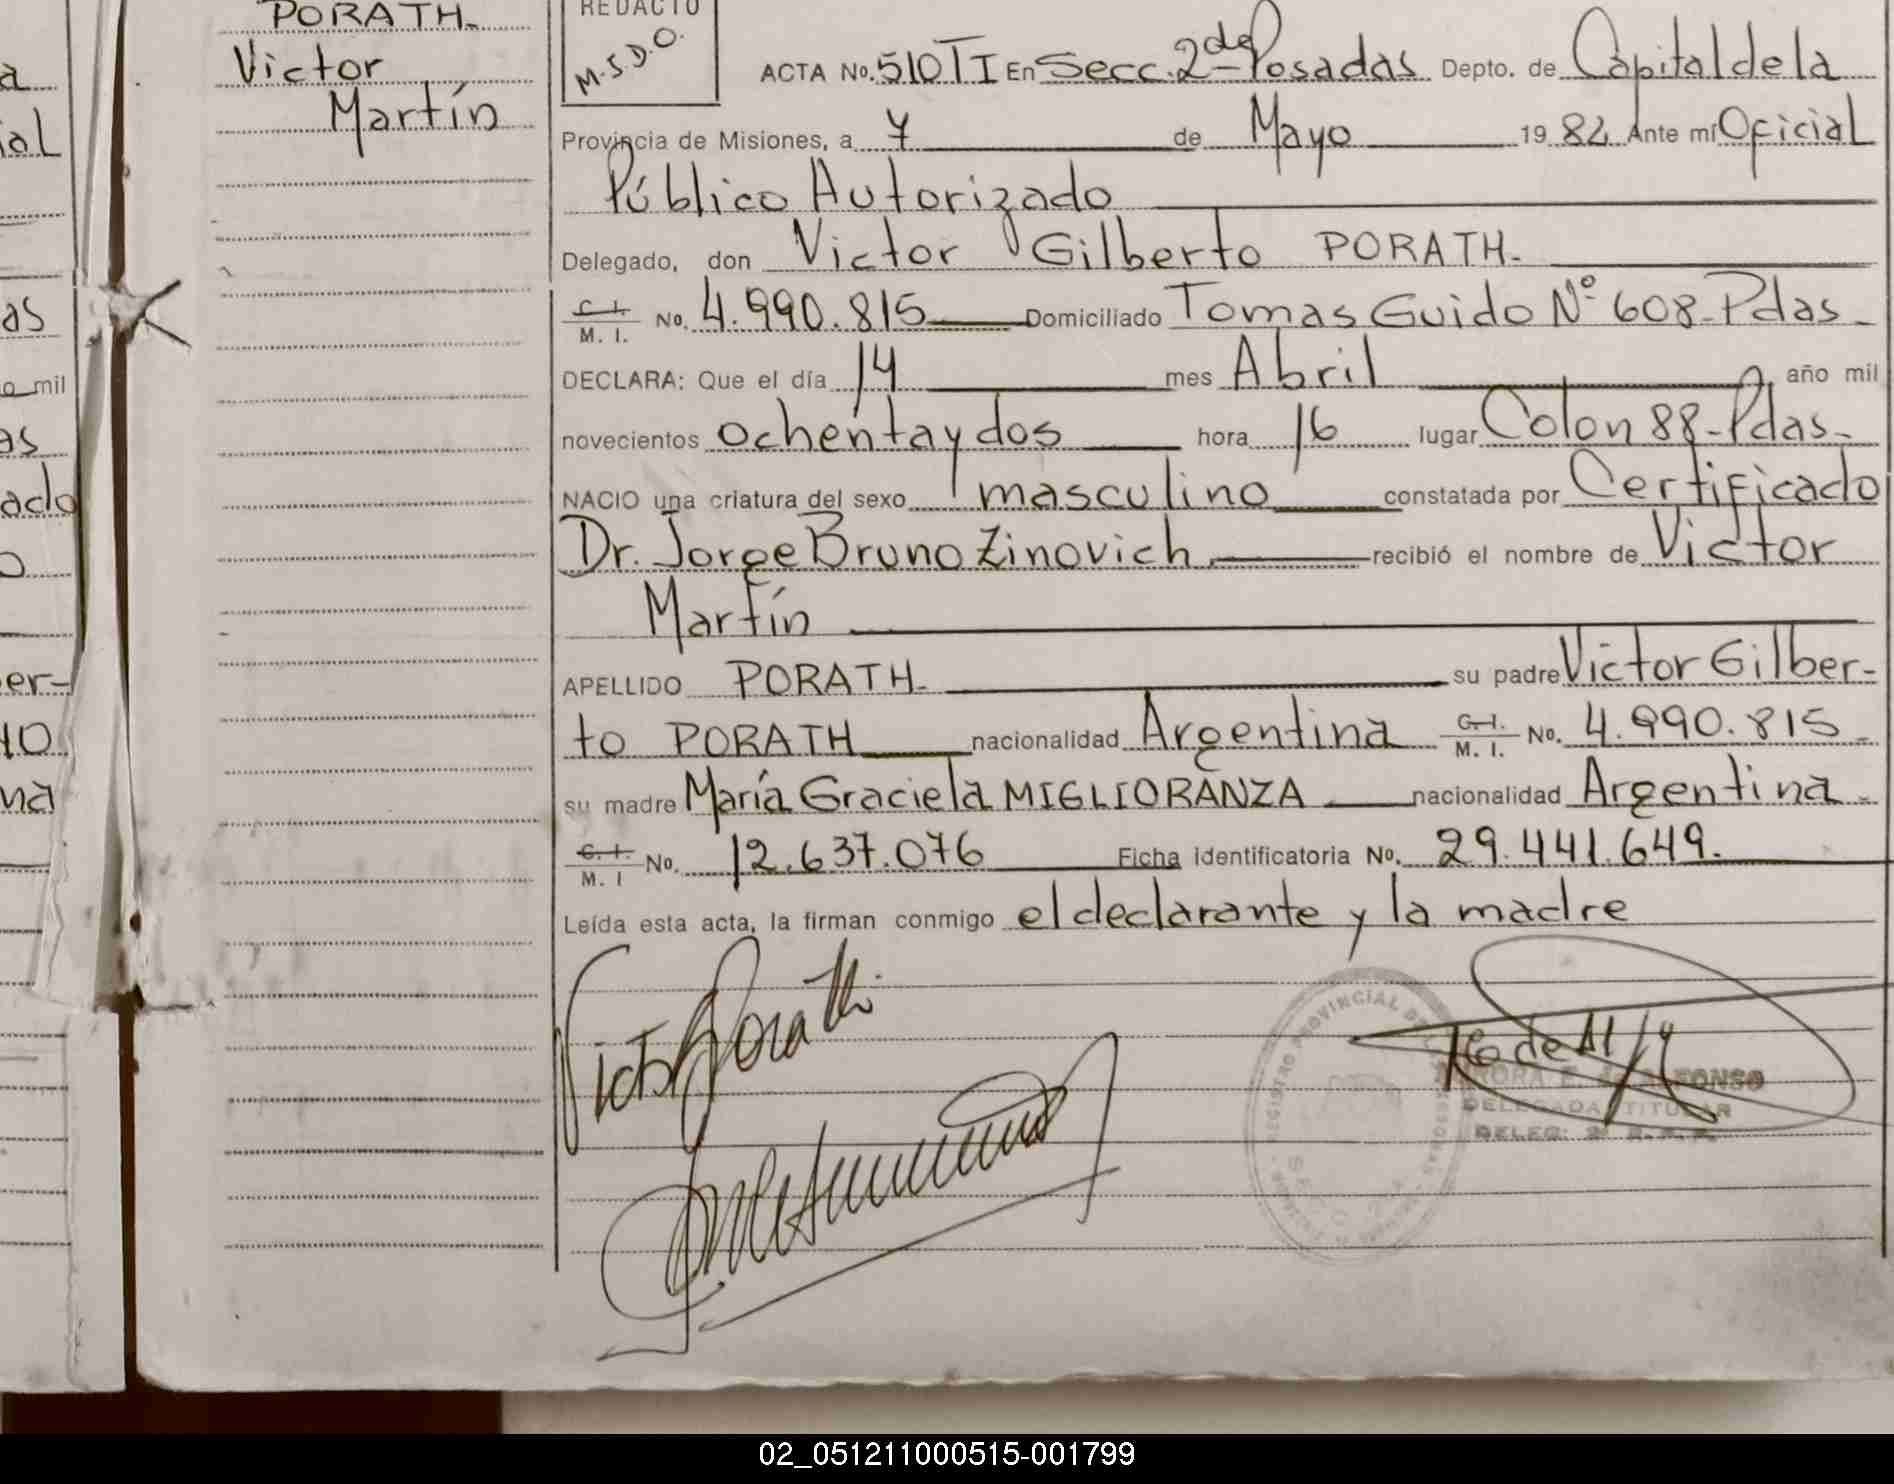 PORATH-
Victor
Martín
REDACTO
M.S.D.O.
ACTA No. 510 TI En Secc. 2de Posadas Depto. de Capital de la
Provincia de Misiones, a 7 de Mayo 1982 Ante mí Oficial
Público Autorizado
Delegado, don Victor Gilberto PORATH-
C. I. M. I. No. 4.990.815 Domiciliado Tomas Guido Nº 608-Pdas-
DECLARA: Que el día 14 mes Abril año mil
novecientos ochenta y dos hora 16 lugar Colon 88-Pdas-
NACIO una criatura del sexo masculino constatada por Certificado
Dr. Jorge Bruno Zinovich recibió el nombre de Victor
Martín
APELLIDO PORATH- su padre Victor Gilber-
to PORATH nacionalidad Argentina C. I. M. I. No. 4.990.815-
su madre María Graciela MIGLIORANZA nacionalidad Argentina-
C. I. M. I No. 12.637.076 Ficha identificatoria No. 29.441.649.
Leída esta acta, la firman conmigo el declarante y la madre
Victor Porath
REGISTRO PROVINCIAL DE LAS PERSONAS
DELEGADA TITULAR
a
ial
as
o mil
as
ado
o
er-
10
na
02_051211000515-001799